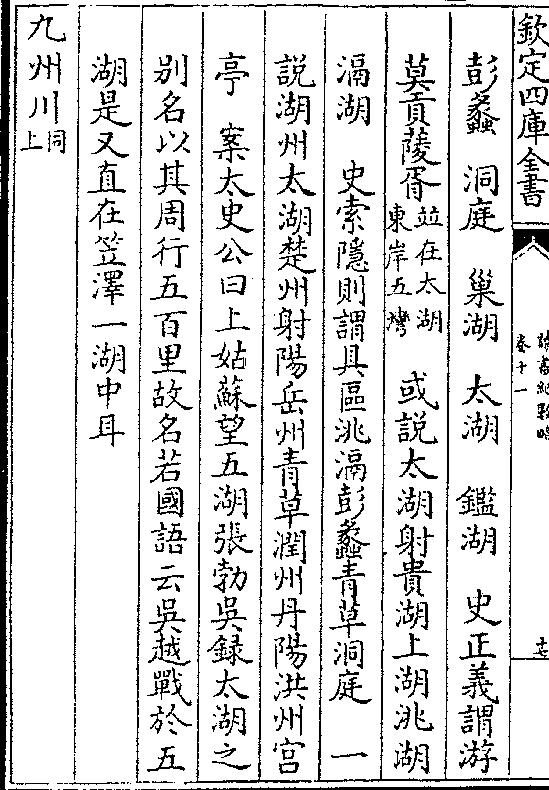 欽定四庫全書
讀書紀數略
卷十一
十七
彭蠡　洞庭　巢湖　太湖　鑑湖　史正義謂游
莫貢菱胥並在太湖東岸五灣　或説太湖射貴湖上湖洮湖
滆湖　史索隱則謂具區洮滆彭蠡青草洞庭　一
説湖州太湖楚州射陽岳州青草潤州丹陽洪州宫
亭　案太史公曰上姑蘇望五湖張勃吳録太湖之
別名以其周行五百里故名若國語云吳越戰於五
湖是又直在笠澤一湖中耳
九州川同上